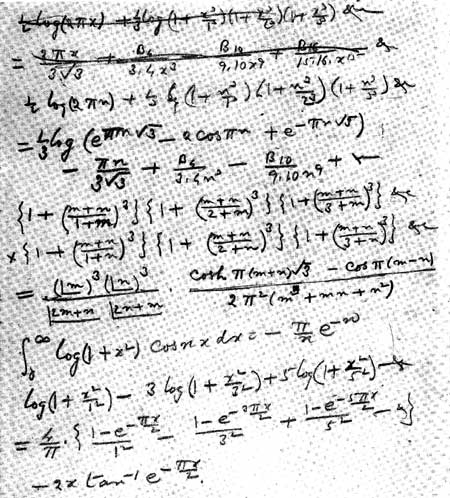 ½ log(2πx) + ⅓ log(1 + x³/1³)(1 + x³/2³)(1 + x³/3³) &c
= 2πx/3√3 + B₄/3.4x³ B₁₀/9.10x⁹ + /15.16.x¹⁵ &
½ log(2πn) + ⅓ log(1 + n³/1³)(1 + n³/2³)(1 + n³/3³) &c
= ⅓ log(e^{πn√3} − 2cosπn + e^{−πn√3})
− πn/3√3 + B₄/3.4n³ − B₁₀/9.10n⁹ +
{1 + (m+n/1+m)³}{1 + (m+n/2+m)³}{1 + (m+n/3+m)³} &c
× {1 + (m+n/1+n)³}{1 + (m+n/2+n)³}{1 + (m+n/3+n)³} &c
= (|m)³(|n)³/|2m+n |2n+m . cosh π(m+n)√3 − cos π(m−n)/2π²(m²+mn+n²)
∫₀^∞ log(1+x²) cos nx dx = − π/n e^{−n}
log(1 + x²/1²) − 3 log(1 + x²/3²) + 5 log(1 + x²/5²) − &
= 4/π . {1−e^{−πx/2}/1² − 1−e^{−3πx/2}/3² + 1−e^{−5πx/2}/5² − &}
− 2x tan⁻¹ e^{−πx/2}.